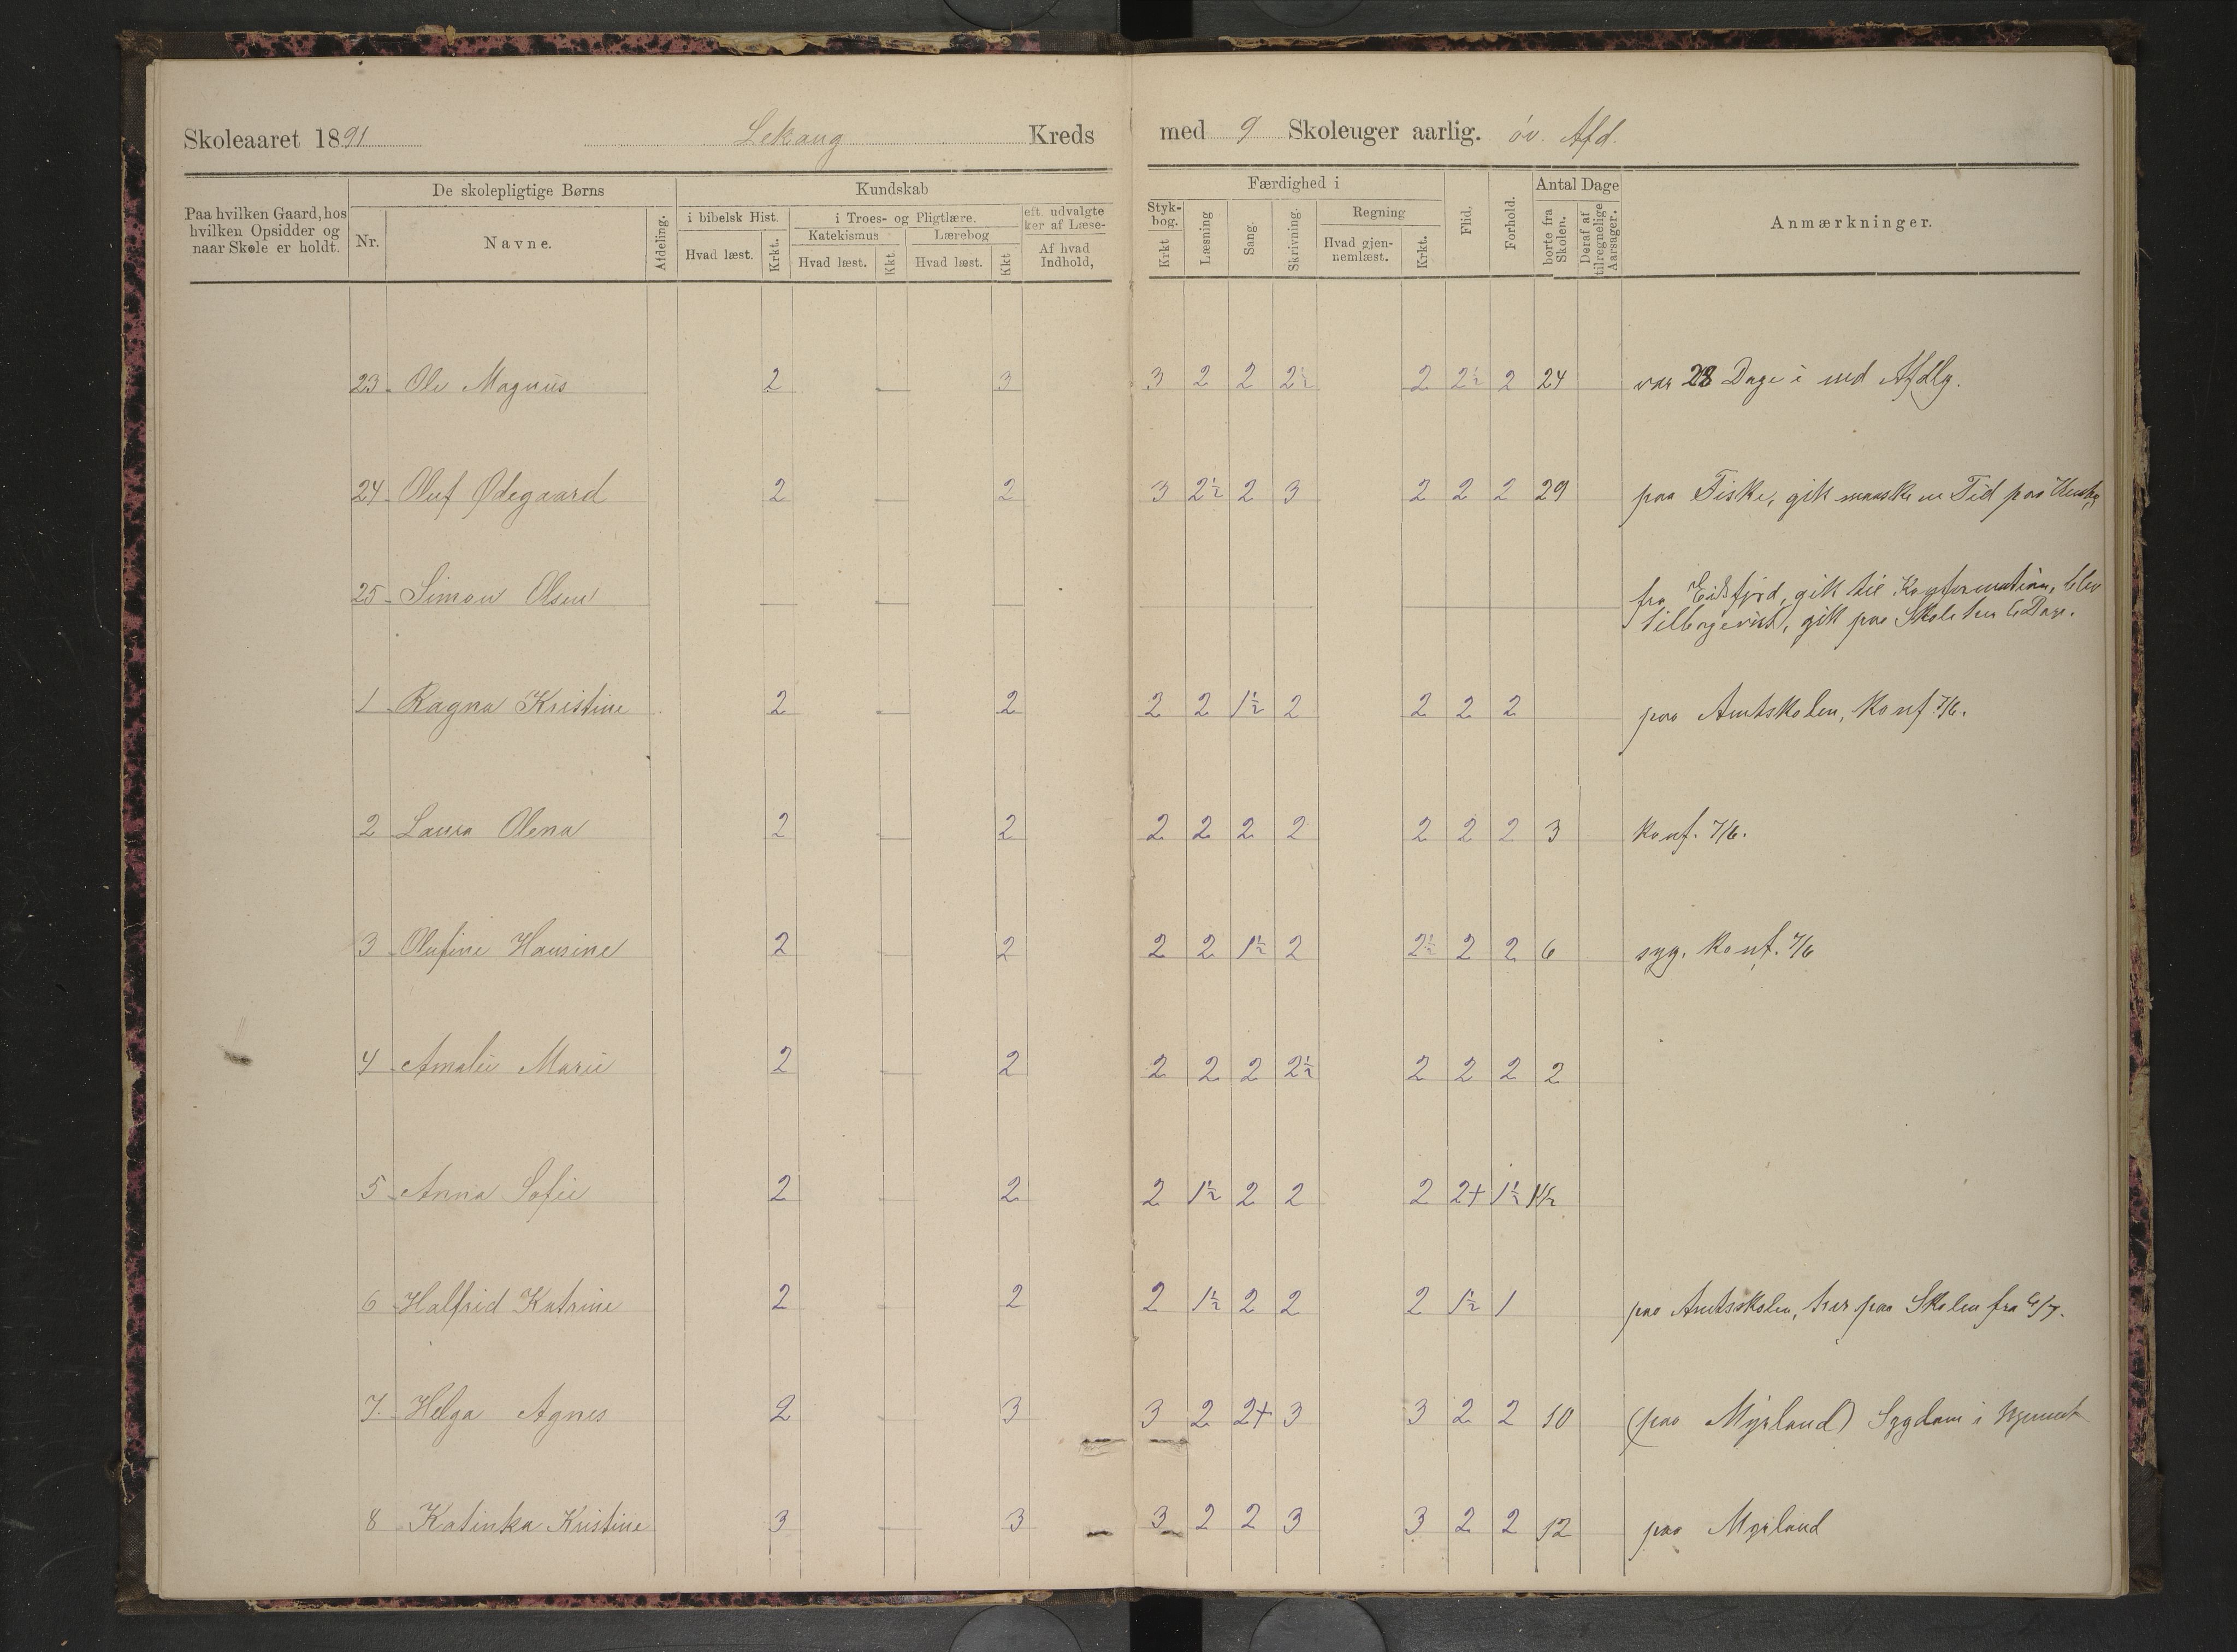 Skoleaaret 1891 Lekang Kreds med 9 Skoleuger aarlig. öv. Afd.
Paa hvilken Gaard, hos hvilken Opsidder og naar Skole er holdt.
De skolepligtige Børns
Nr.
Navne.
Afdeling.
Kundskab
i bibelsk Hist.
Hvad læst.
Krkt.
i Troes- og Pligtlære.
Katekismus
Hvad læst.
Kkt.
Lærebog
Hvad læst.
Kkt
eft. udvalgte
ker af Læse-
Af hvad
Indhold,
Færdighed i
Styk-
bog.
Krkt
Læsning
Sang.
Skrivning.
Regning
Hvad gjen-
nemlæst.
Krkt.
Flid,
Forhold.
Antal Dage
borte fra Skolen.
Deraf af tilregnelige Aarsager.
Anmærkninger.
23 Ole Magnus 2 — 3 3 2 2 2½ 2 2½ 2 24 var 28 Dage i ned Afdlg.
24 Oluf Ødegaard 2 — 2 3 2½ 2 3 2 2 2 29 paa Fiske, gik maaske en Tid paa
25 Simon Olsen — — — fra Eidsfjord, gik til Konfirmation, blev
gik paa Skole her 6 Dage.
1 Ragna Kristine 2 — 2 2 2 1½ 2 2 2 2 paa Amtskolen, Konf. 7/6.
2 Laura Olena 2 — 2 2 2 2 2 2 2 2 3 Konf. 7/6.
3 Olufine Hansine 2 — 2 2 2 1½ 2 2½ 2 2 6 syg. Konf. 7/6
4 Amalie Marie 2 — 2 2 2 2 2½ 2 2 2 2
5 Anna Sofie 2 — 2 2 1½ 2 2 2 2+ 1½ 1½
6 Halfrid Katrine 2 — 2 2 1½ 2 2 2 1½ 1 paa Amtsskolen, her paa Skolen fra 6/7.
7. Helga Agnes 2 — 3 3 2 2+ 3 3 2 2 10 (paa Myrland) Sygdom i Hjemmet
8 Katinka Kristine 3 — 3 3 2 2 3 3 2 2 12 paa Myrland